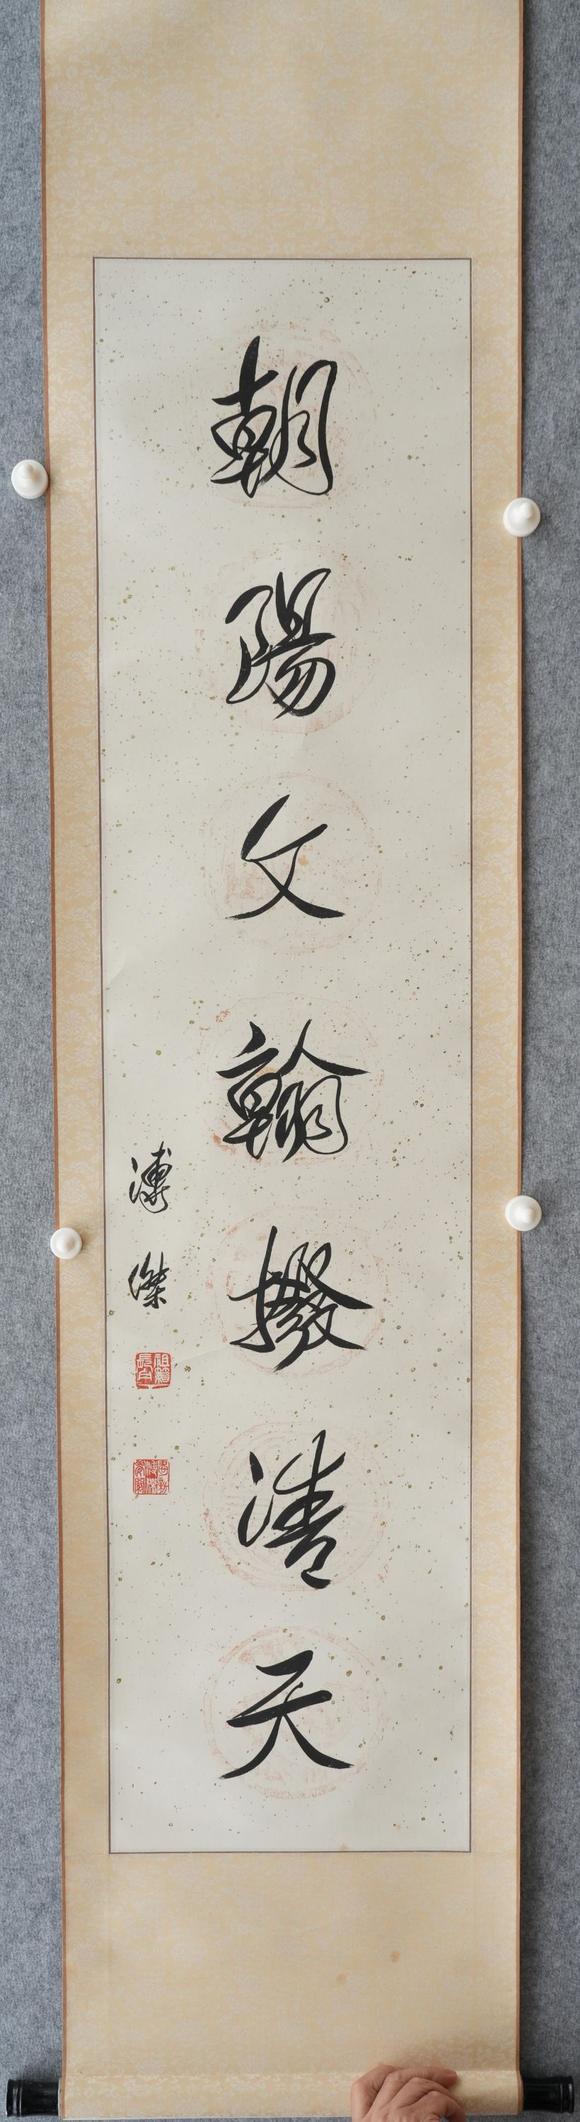 朝陽文翰撥清天
溥傑